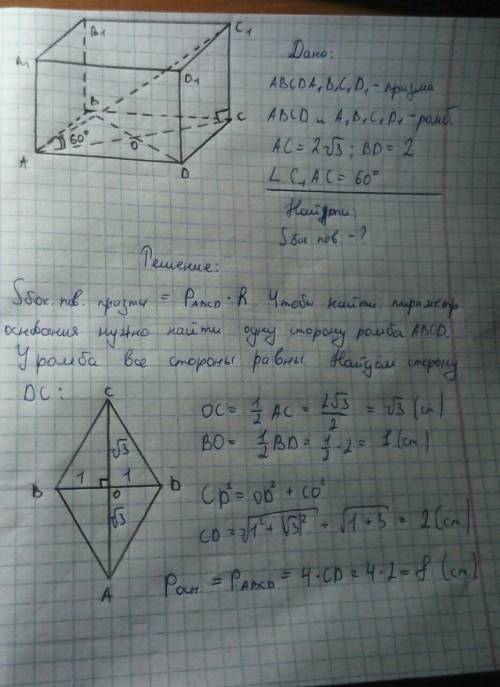 B1
C1
A1
D1
B
C
60°
O
A
D
Дано:
ABCDA1B1C1D1 - призма
ABCD и A1B1C1D1 - ромб.
AC = 2√3; BD = 2
∠ C1AC = 60°
Найти:
Sбок.пов. - ?
Решение:
Sбок.пов. призмы = PABCD · h. Чтобы найти периметр
основания нужно найти одну сторону ромба ABCD.
У ромба все стороны равны Найдём сторону
DC:
C
√3
1
1
B
O
D
√3
A
OC = 1/2 AC = 2√3/2 = √3 (см)
BO = 1/2 BD = 1/2 · 2 = 1 (см)
CD² = OD² + CO²
CD = √1² + √3² = √1 + 3 = 2 (см)
Pосн. = PABCD = 4 · CD = 4 · 2 = 8 (см)